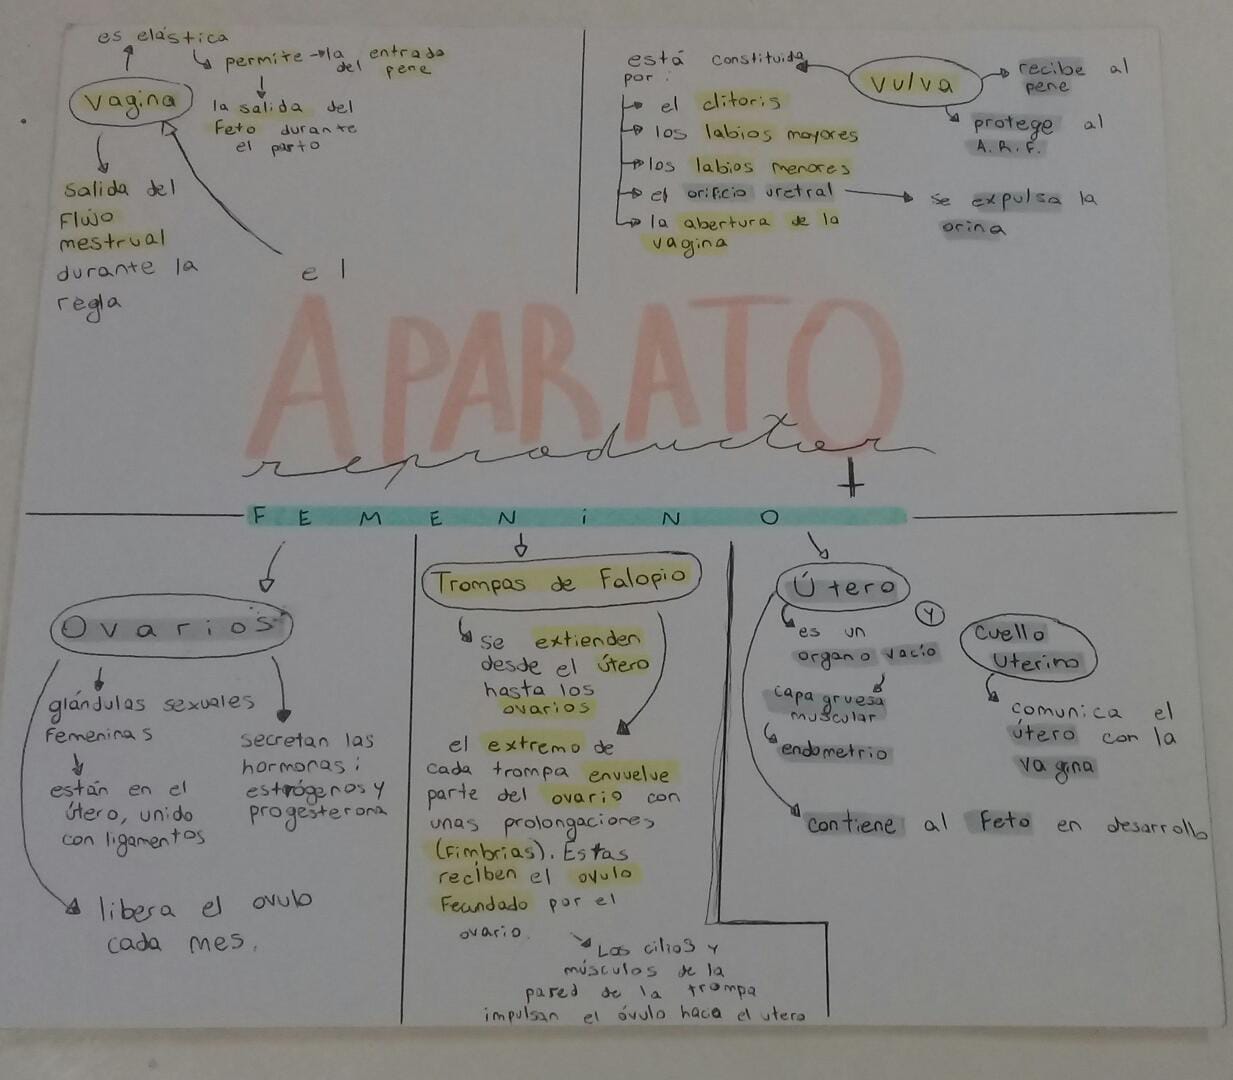 es elástica
permite la entrada
del pene
vagina
la salida del
feto durante
el parto
salida del
flujo
mestrual
durante la
regla
está constituida
por:
el clitoris
los labios mayores
los labios menores
el orificio uretral
la abertura de la
vagina
vulva
recibe al
pene
protege al
A.R.F.
se expulsa la
orina
el
APARATO
reproductor
FEMENiNO
Ovarios
glándulas sexuales
femeninas
están en el
útero, unido
con ligamentos
secretan las
hormonas:
estrógenos y
progesterona
libera el ovulo
cada mes.
Trompas de Falopio
se extienden
desde el útero
hasta los
ovarios
el extremo de
cada trompa envuelve
parte del ovario con
unas prolongaciones
(fimbrias). Estas
reciben el ovulo
fecundado por el
ovario.
Los cilios y
músculos de la
pared de la trompa
impulsan el óvulo haca el utero
Útero
es un
organo vacío
capa gruesa
muscular
endometrio
contiene al feto en desarrollo
y
cuello
uterino
comunica el
útero con la
vagina